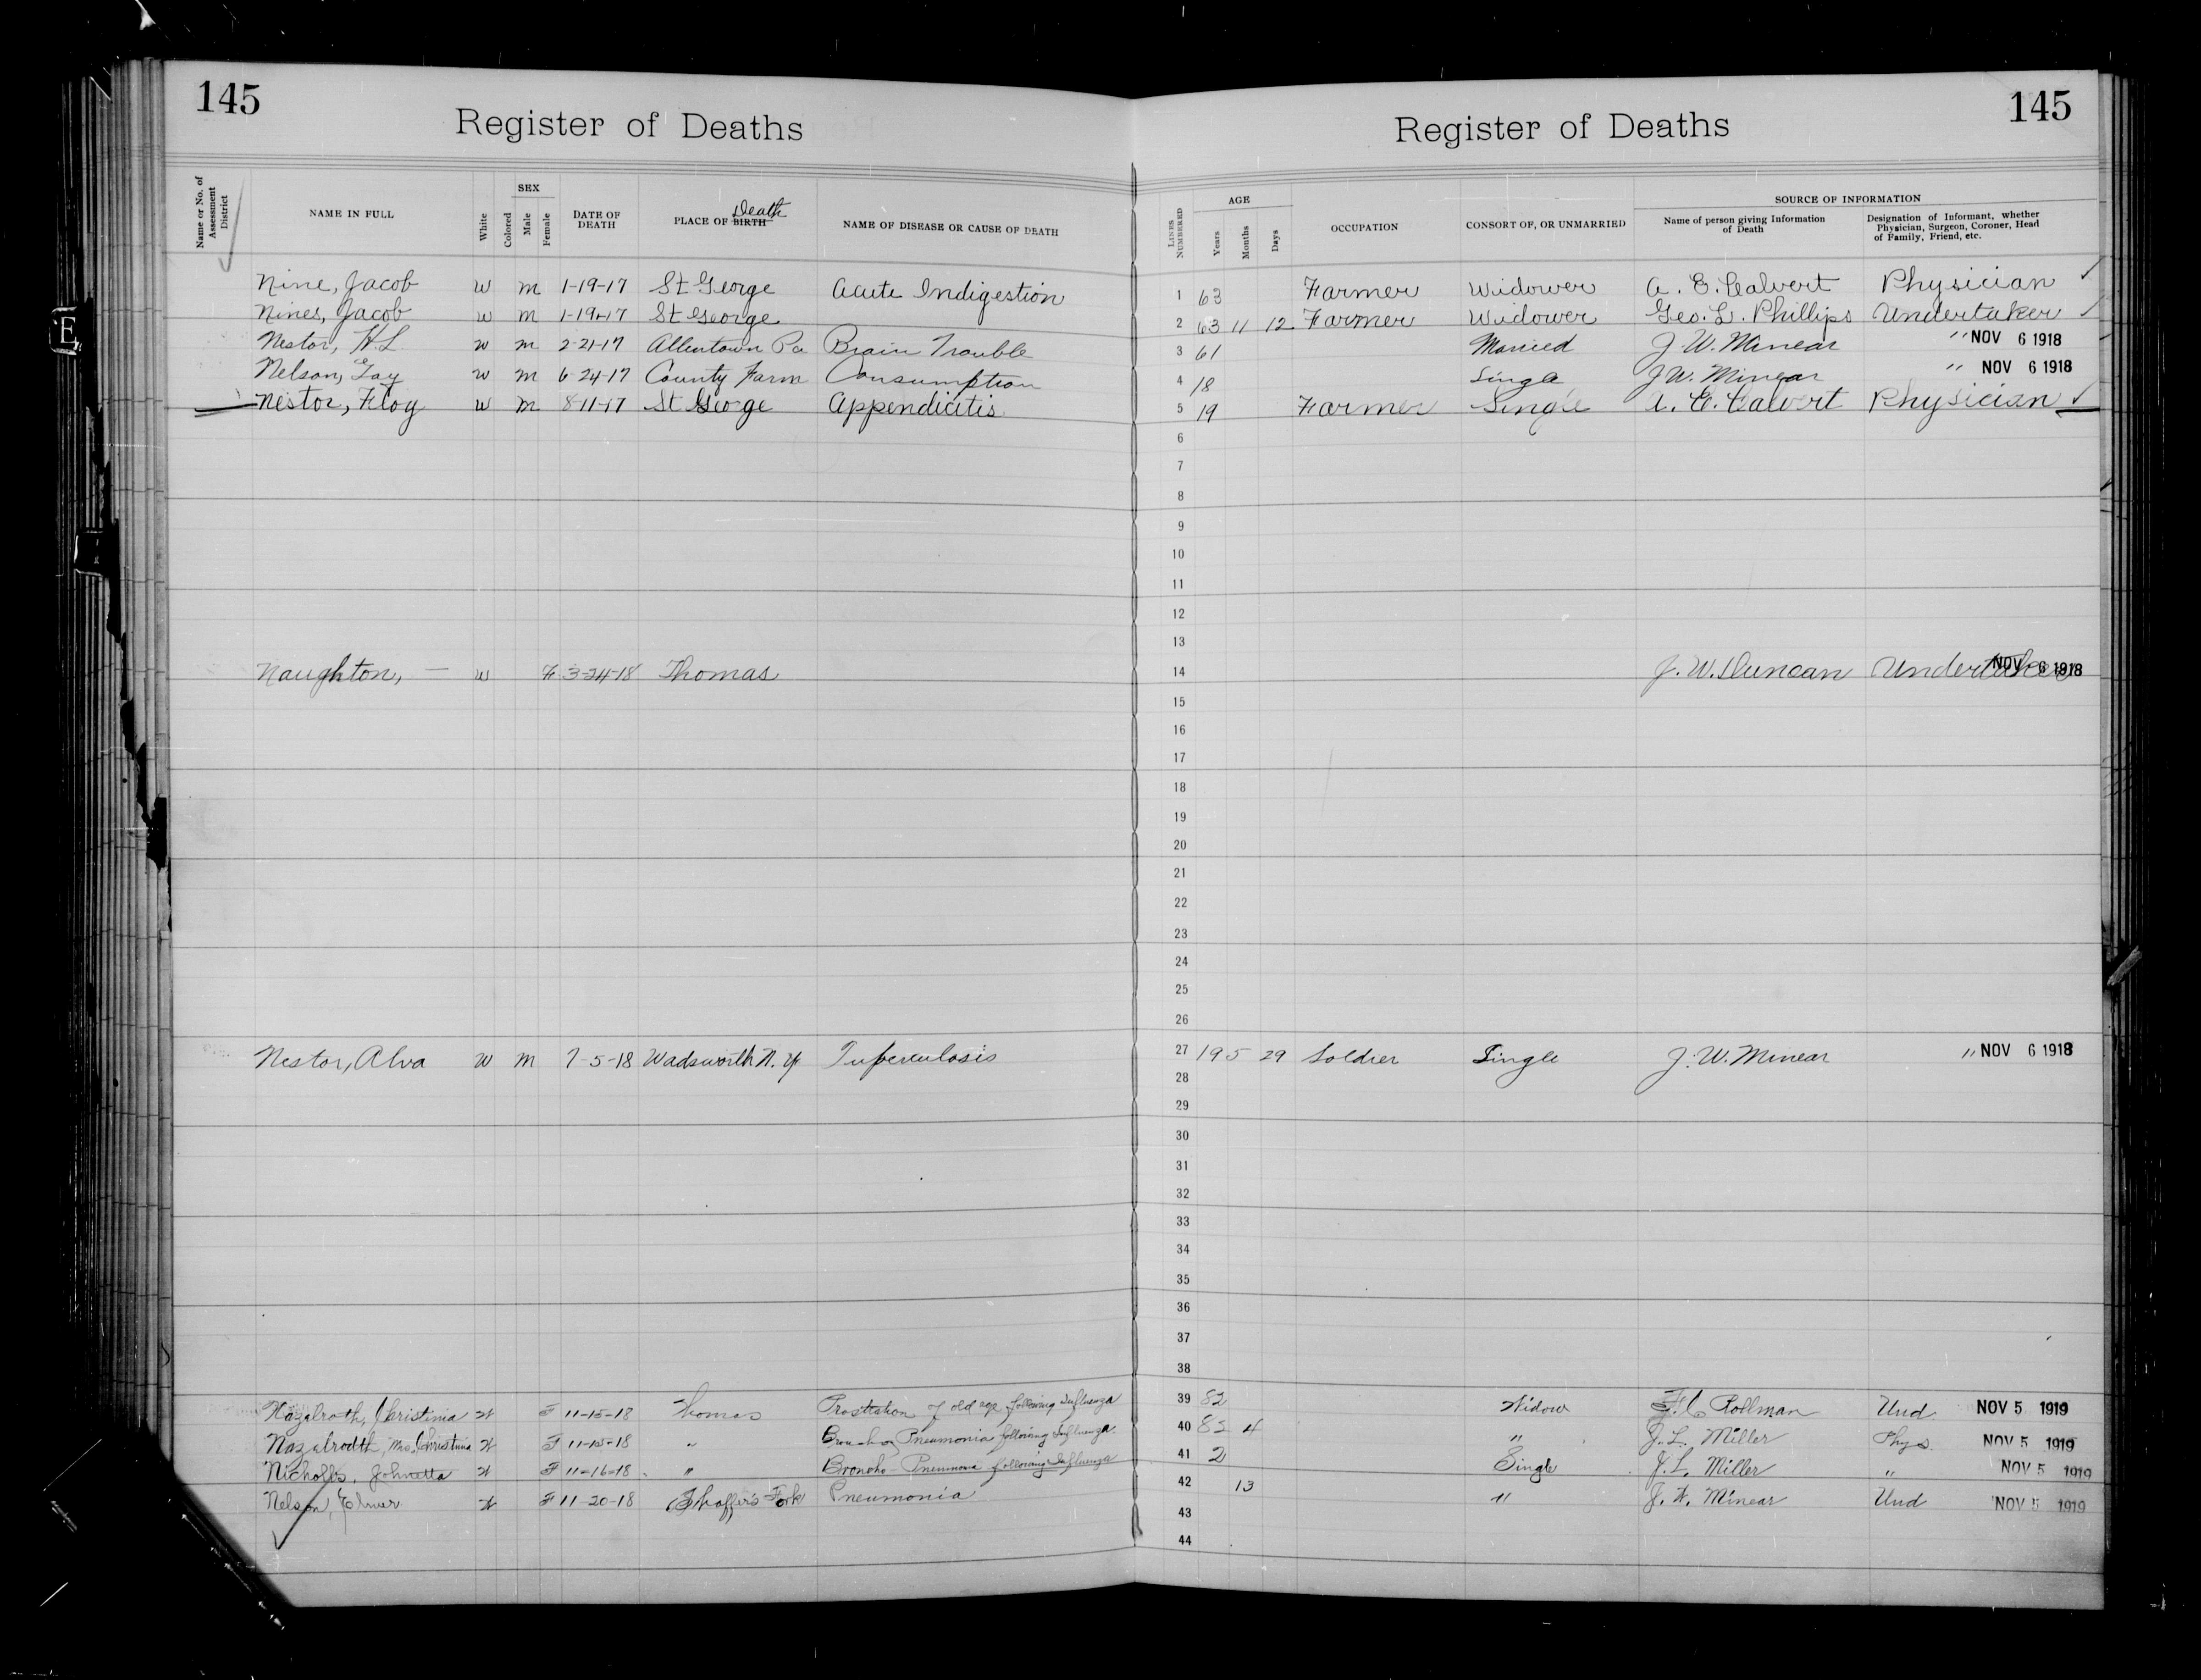 145
Register of Deaths
Register of Deaths
145
Name or No. of Assessment District
NAME IN FULL
White
Colored
SEX
Male
Female
DATE OF DEATH
Death
PLACE OF BIRTH
NAME OF DISEASE OR CAUSE OF DEATH
LINES NUMBERED
AGE
Years
Months
Days
OCCUPATION
CONSORT OF, OR UNMARRIED
SOURCE OF INFORMATION
Name of person giving Information of Death
Designation of Informant, whether Physician, Surgeon, Coroner, Head of Family, Friend, etc.
Nine, Jacob W M 1-19-17 St George Acute Indigestion 1 63 Farmer Widower A. E. Calvert Physician ✓
Nines, Jacob W M 1-19-17 St George 2 63 11 12 Farmer Widower Geo. L. Phillips Undertaker ✓
Nestor, H. L. W M 2-21-17 Allentown Pa Brain Trouble 3 61 Married J. W. Minear " NOV 6 1918
Nelson, W M 6-24-17 County Farm Consumption 4 18 Single J. W. Minear " NOV 6 1918
Nestor, Floy W M 8-11-17 St George Appendicitis 5 19 Farmer Single A. E. Calvert Physician ✓
6
7
8
9
10
11
12
13
Naughton, — W F 3-24-18 Thomas 14 J. W. Duncan Undertaker NOV 6 1918
15
16
17
18
19
20
21
22
23
24
25
26
Nestor, Alva W M 7-5-18 Wadsworth N. Y. Tuberculosis 27 19 5 29 Soldier Single J. W. Minear " NOV 6 1918
28
29
30
31
32
33
34
35
36
37
38
Nazelroth, Christinia W F 11-15-18 Thomas Prostration of old age following Influenza 39 82 Widow F. C. Rollman Und NOV 5 1919
Nazelrodth, Mrs. Christina W F 11-15-18 " Broncho Pneumonia following Influenza 40 82 4 " J. L. Miller Phys NOV 5 1919
Nicholls, Johnetta W F 11-16-18 " Broncho-Pneumonia following Influenza 41 2 Single J. L. Miller " NOV 5 1919
Nelson, Elmer W F 11-20-18 Shaffer's Fork Pneumonia 42 13 " J. W. Minear Und NOV 5 1919
43
44